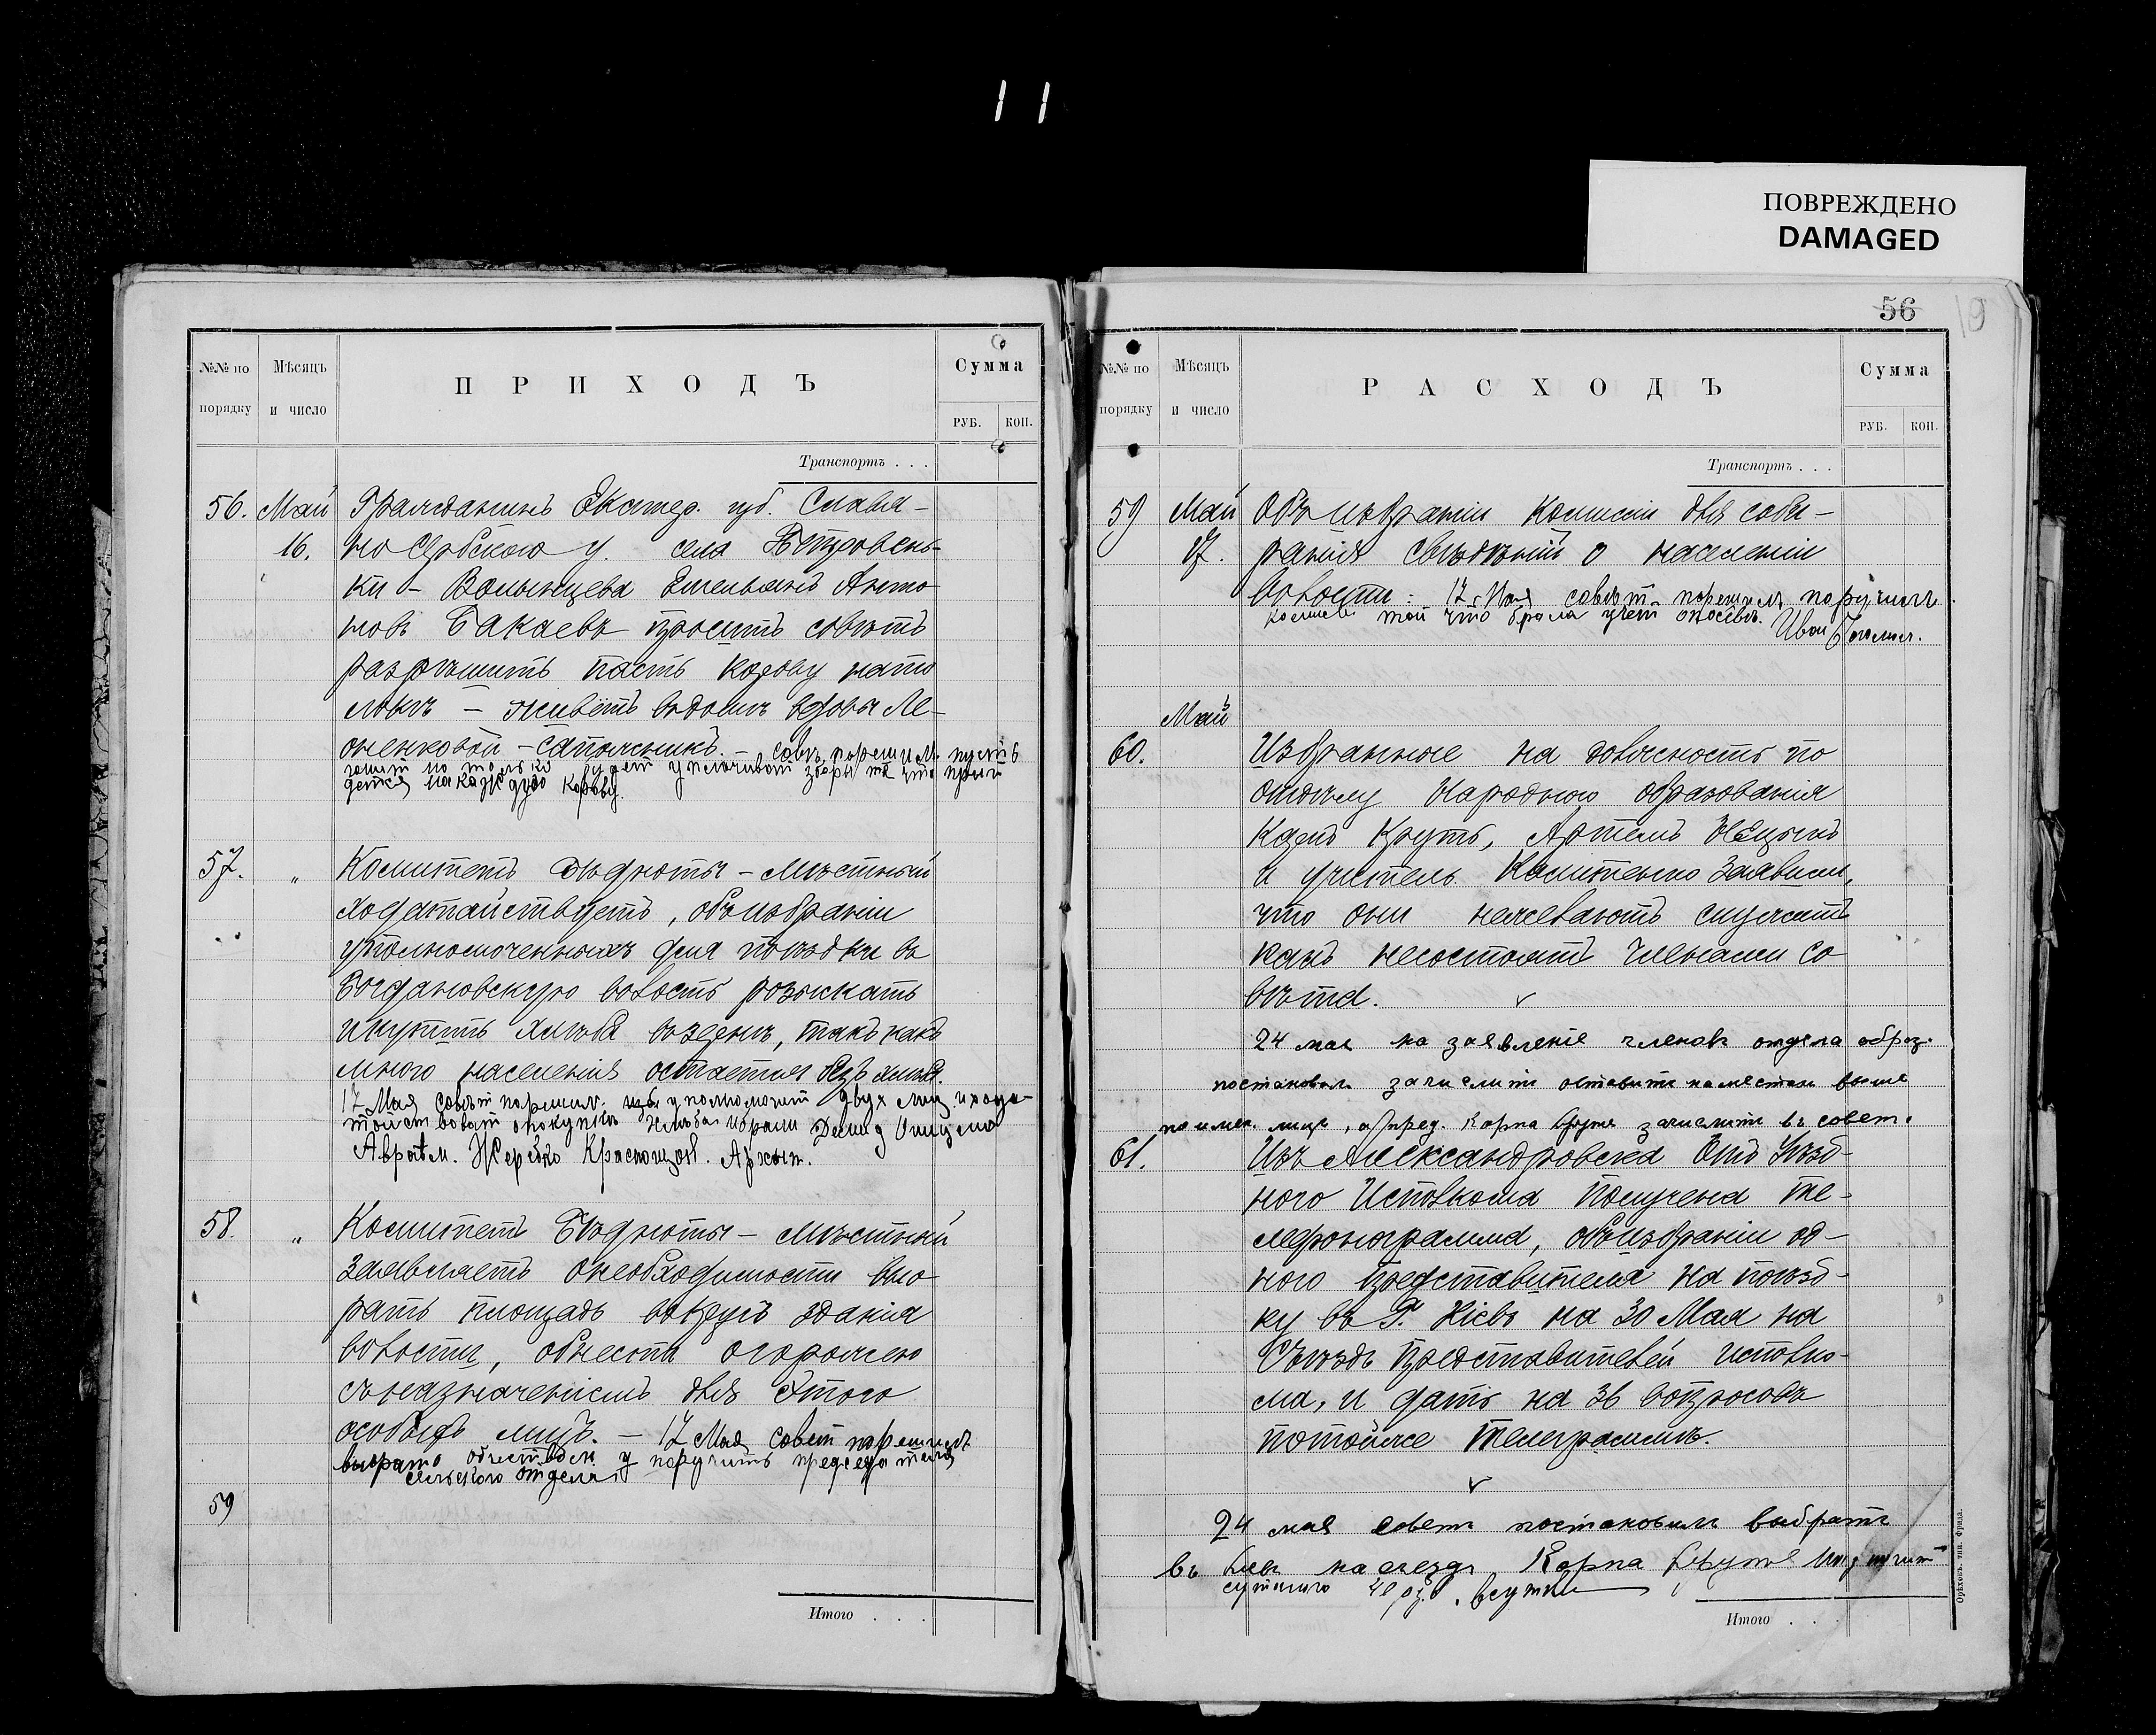 11
ПОВРЕЖДЕНО
DAMAGED
№№ по порядку
Мѣсяцъ и число
ПРИХОДЪ
Сумма
РУБ. КОП.
Транспортъ . . .
56. Май Гражданинъ Екатер. губ. Славя-
16. но Сербского у. села Петровень-
ки - Волынцева Емельянъ Анто
новъ Бакаевъ проситъ совѣтъ
разрѣшить пасть корову нато
ловъ - живётъ въ домъ вдовы Ле-
оненковой - сапожникъ. - совѣ. порешил. пусть
но только будет уплачиват зборы та что прый
детса на каждую корову.
57. " Комитетъ Бѣдноты - Мѣстный
ходатайствуетъ, объ избраніи
уполномоченныхъ для поѣздки въ
Богдановскую волость розыскать
и купить хлѣба въ зернѣ, такъ какъ
много населенія остается безъ хлѣба.
17 Мая совѣт порешил. уполномочит двух лиц. и хода-
тойствоват о покупкѣ хлѣба ибрали Демид Онищема
Аврам. Жережко Краснощок. Архип.
58. " Комитетъ Бѣдноты - Мѣстный
заявляетъ о необходимости выо
рать площадь вокругъ зданія
волости, обнести огорожею
съ назначеніемъ для этого
особыхъ лицъ. - 17 Мая совет порешилъ
выорать обчеством у поручить председателя
сельского отдела
59
Итого . . .
56
19
№№ по порядку
Мѣсяцъ и число
РАСХОДЪ
Сумма
РУБ. КОП.
Транспортъ . . .
59 Май Объ избраніи комиссіи для соби-
17. ранія свѣдѣній о населеніи
волости: 17 Мая совѣт порешилъ поручит
комисіи той что брала учет
Май
60. Избранные на должность по
отдѣлу Народного образованія
Карпъ Крутъ, Артемъ
и учитель заявили,
что они нежелаютъ служить
какъ несостоятъ членами Со
вѣта.
24 мая на заявленіе членовъ отдела образ.
постановил зачислит оставит на местах выше
поимен. лиц, а пред. Карпа Крута зачислит въ совет.
61. Изъ Александровска Отъ Уѣзд-
ного Исполкома получена те-
лефонограмма, объ избраніи од-
ного представителя на поѣзд-
ку въ Г. Кіевъ на 30 Мая на
Съѣздъ представителей исполко-
ма, и дать на 36 вопросовъ
потойже телеграммѣ.
24 мая совет постановилъ выбрат
въ Киев на съезд Карпа Крута
сутошно 40 руб. всутки
Итого . . .
Орѣховъ, тип. Фрида.